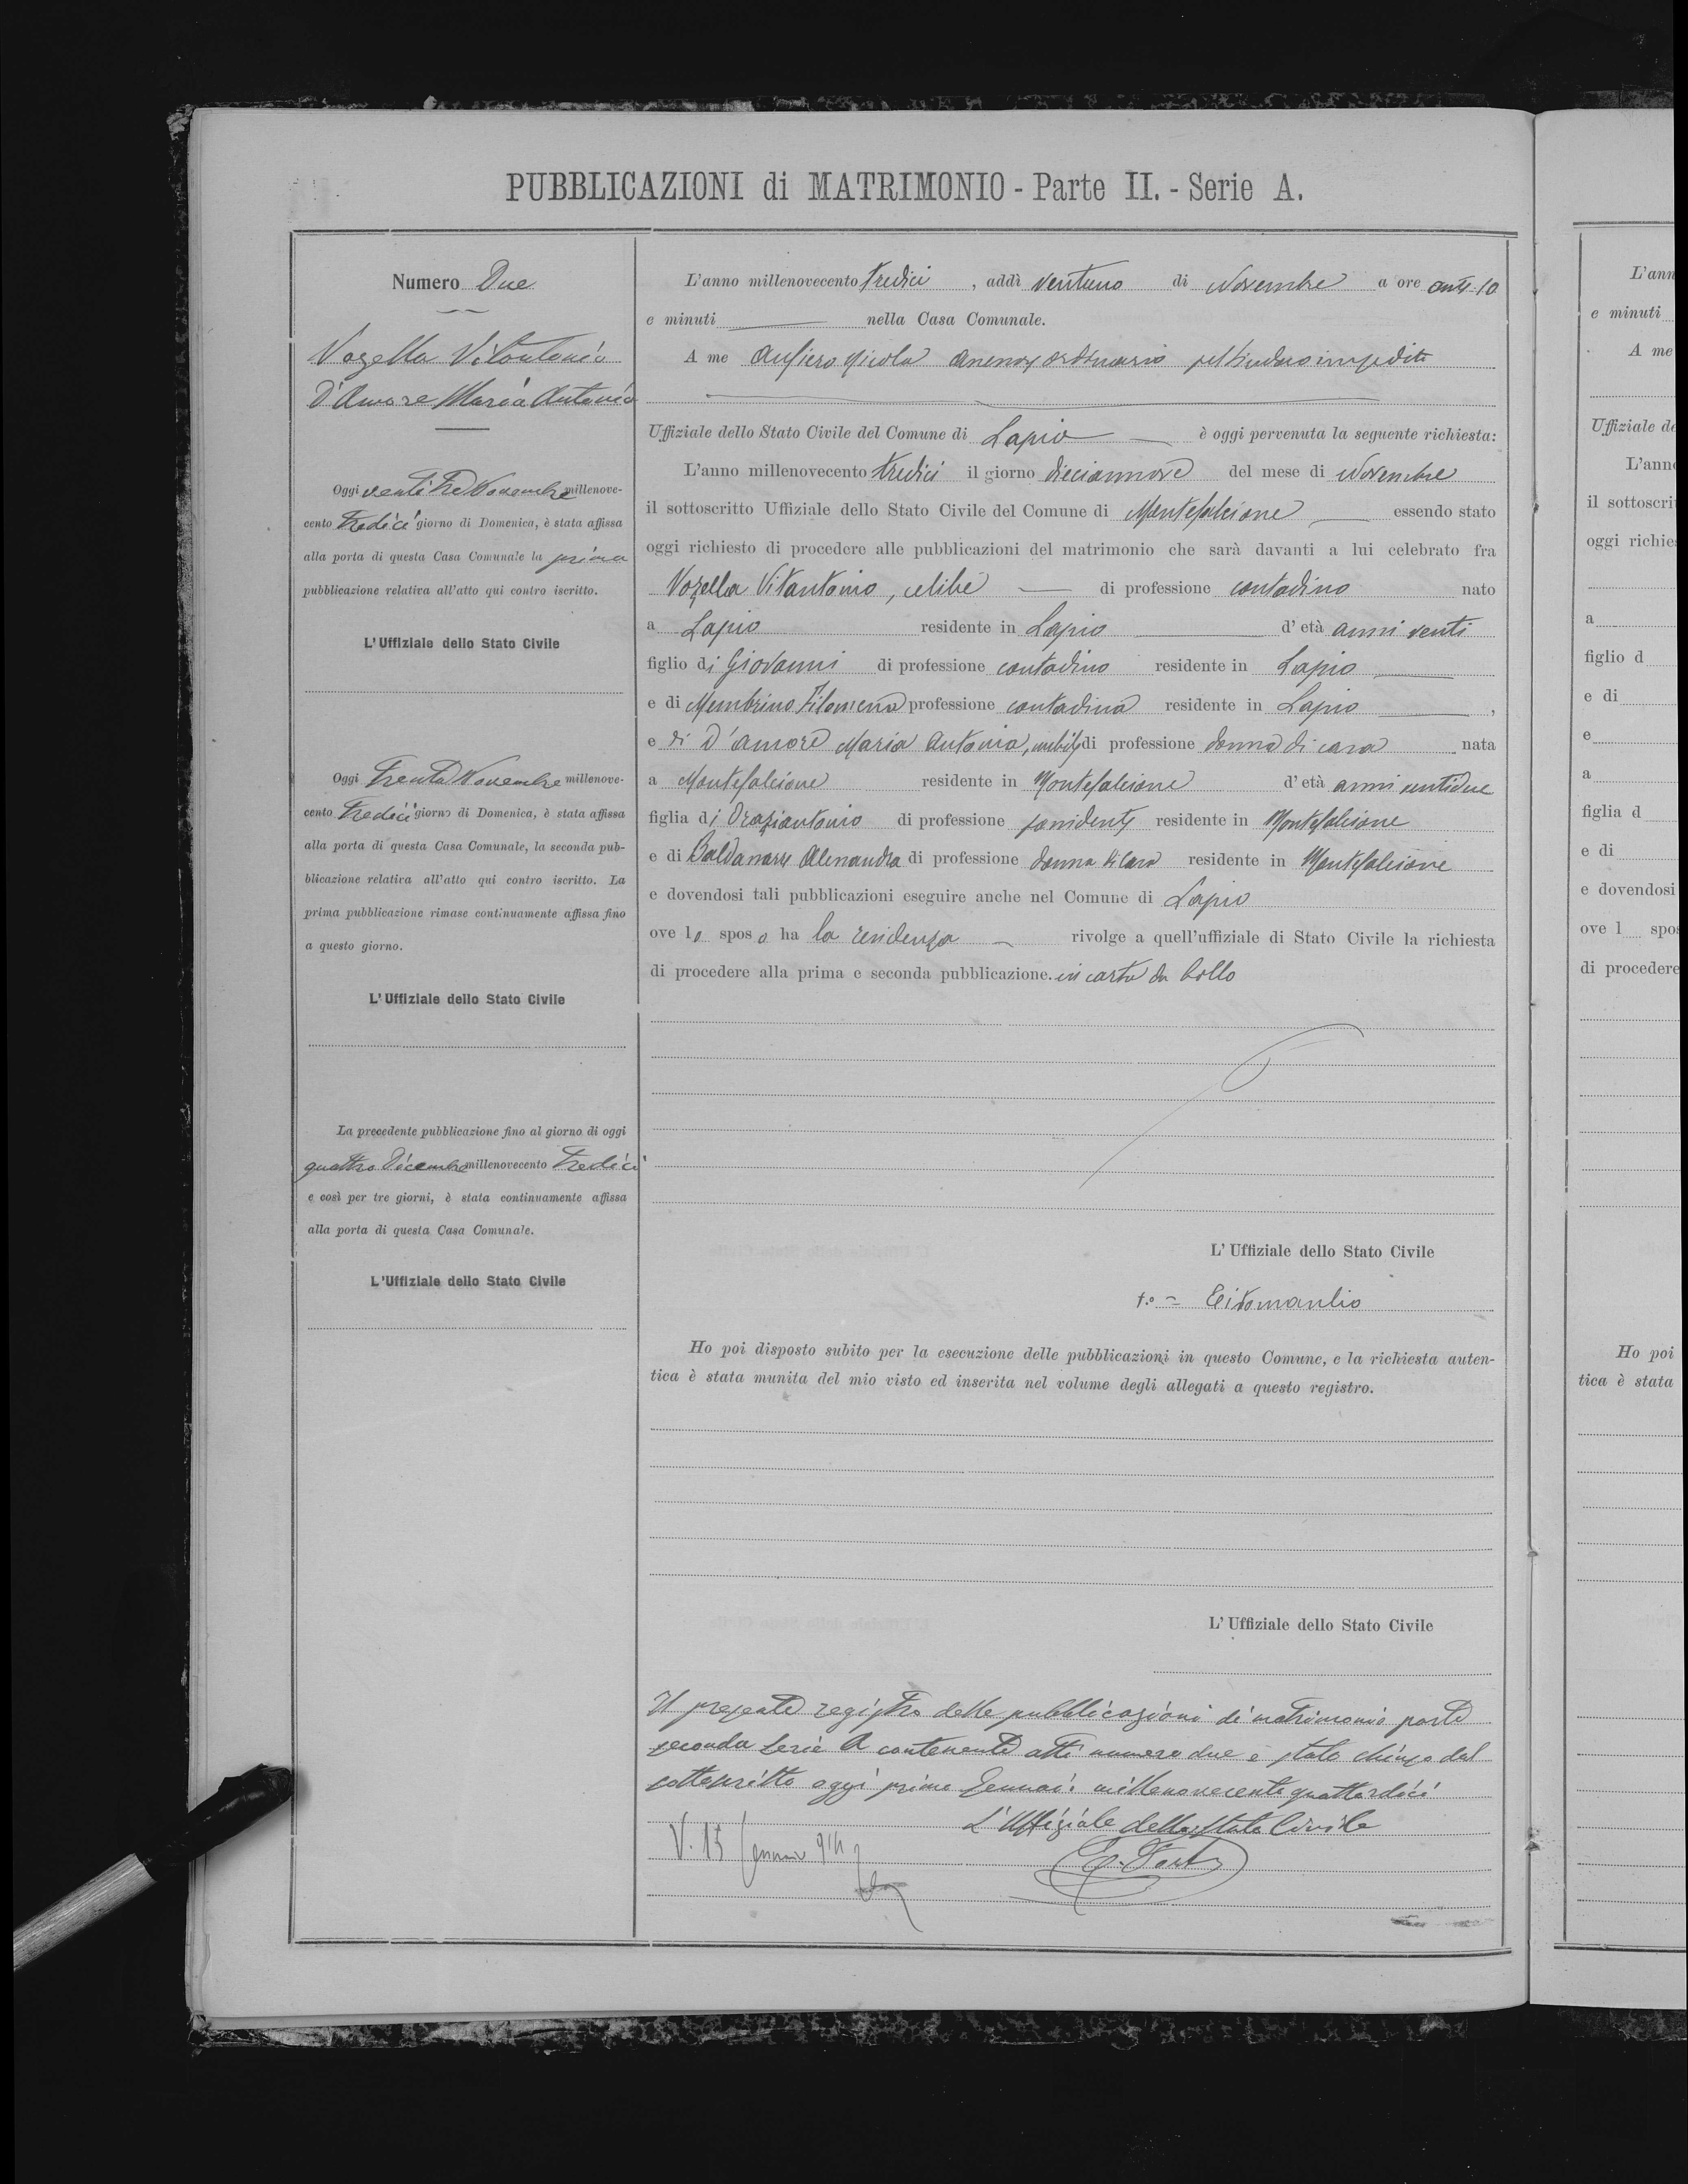 PUBBLICAZIONI di MATRIMONIO - Parte II. - Serie A.
Numero Due
Vozella Vitantonio
D'Amore Maria Antonia
Oggi ventitre Novembre millenove-
cento tredici giorno di Domenica, è stata affissa
alla porta di questa Casa Comunale la prima
pubblicazione relativa all'atto qui contro iscritto.
L'Uffiziale dello Stato Civile
Oggi Trenta Novembre millenove-
cento tredici giorno di Domenica, è stata affissa
alla porta di questa Casa Comunale, la seconda pub-
blicazione relativa all'atto qui contro iscritto. La
prima pubblicazione rimase continuamente affissa fino
a questo giorno.
L'Uffiziale dello Stato Civile
La precedente pubblicazione fino al giorno di oggi
quattro Dicembre millenovecento Tredici
e così per tre giorni, è stata continuamente affissa
alla porta di questa Casa Comunale.
L'Uffiziale dello Stato Civile
L'anno millenovecento tredici, addì ventuno di Novembre a ore ant. 10
e minuti nella Casa Comunale.
A me Aufiero Nicola ordinario pel Sindaco impedito
Uffiziale dello Stato Civile del Comune di Lapio è oggi pervenuta la seguente richiesta:
L'anno millenovecento tredici il giorno diciannove del mese di Novembre
il sottoscritto Uffiziale dello Stato Civile del Comune di Montefalcione essendo stato
oggi richiesto di procedere alle pubblicazioni del matrimonio che sarà davanti a lui celebrato fra
Vozella Vitantonio, celibe di professione contadino nato
a Lapio residente in Lapio d'età anni venti
figlio di Giovanni di professione contadino residente in Lapio
e di Membrino Filomena professione contadina residente in Lapio,
e di D'amore Maria Antonia, nubile di professione donna di casa nata
a Montefalcione residente in Montefalcione d'età anni ventidue
figlia di Oraziantonio di professione residente in Montefalcione
e di Baldassarre Alessandra di professione donna di casa residente in Montefalcione
e dovendosi tali pubblicazioni eseguire anche nel Comune di Lapio
ove lo sposo ha la residenza rivolge a quell'uffiziale di Stato Civile la richiesta
di procedere alla prima e seconda pubblicazione. in carta da bollo
L'Uffiziale dello Stato Civile
f.o = Titomanlio
Ho poi disposto subito per la esecuzione delle pubblicazioni in questo Comune, e la richiesta auten-
tica è stata munita del mio visto ed inserita nel volume degli allegati a questo registro.
L'Uffiziale dello Stato Civile
Il presente registro delle pubblicazioni di matrimonio parte
seconda serie A contenente atti numero due è stato chiuso dal
sottoscritto oggi primo Gennaio millenovecento quattordici
L'Uffiziale dello Stato Civile
V. 15 Gennaio 914
L'ann
e minuti
A me
Uffiziale de
L'anno
il sottoscrit
oggi richies
a
figlio d
e di
e
a
figlia d
e di
e dovendosi
ove l spos
di procedere
Ho poi
tica è stata